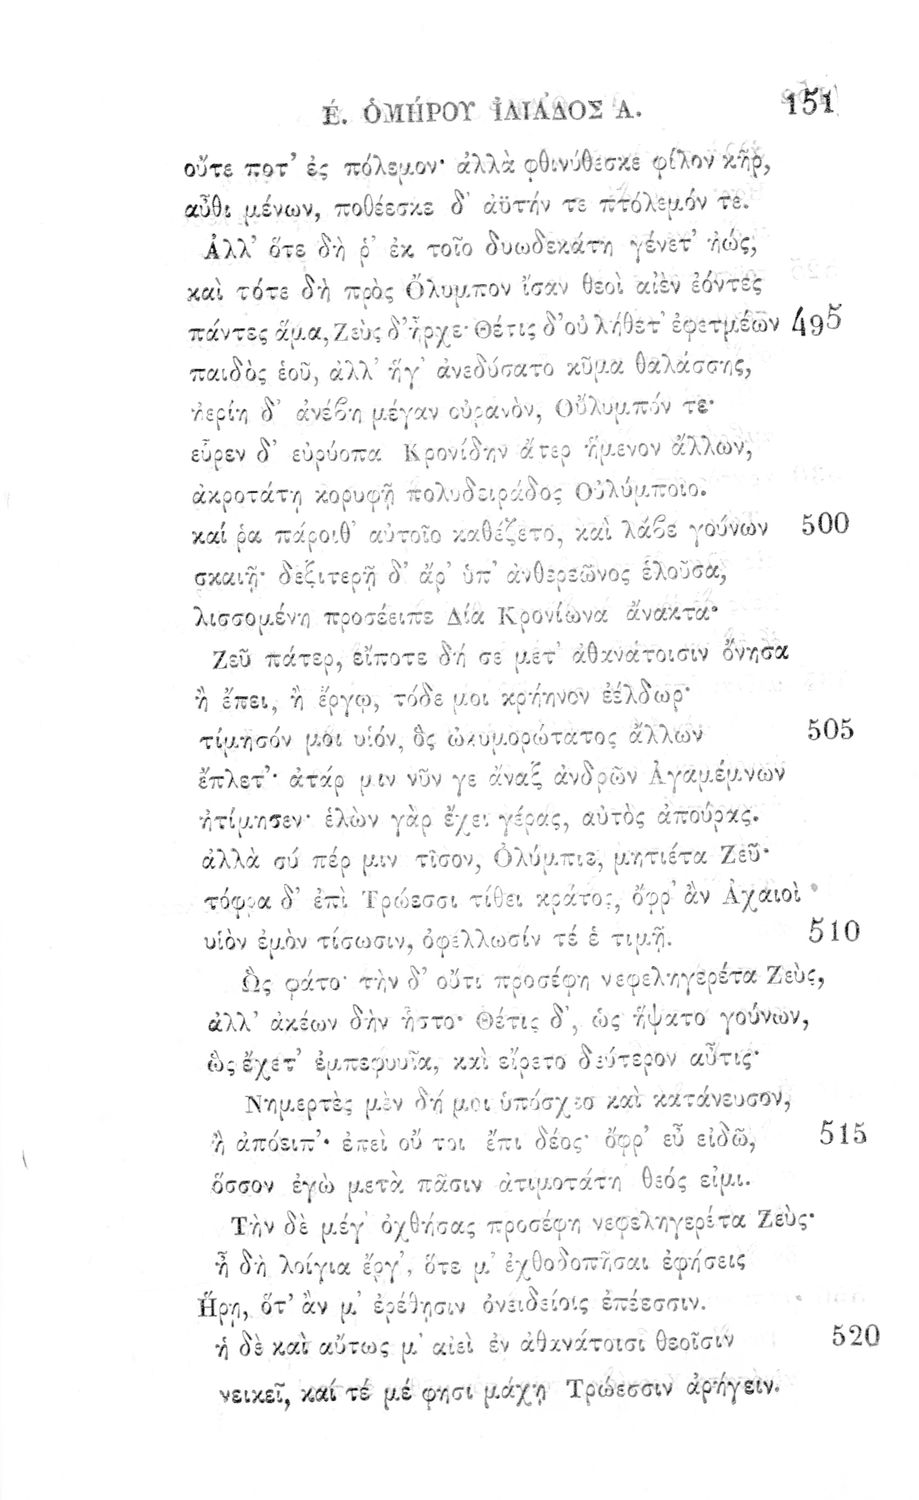 Ε΄. ὉΜΉΡΟΥ ἸΛΙΆΔΟΣ Α. 151
οὔτε ποτ᾽ ἐς πόλεμον· ἀλλὰ φθινύθεσκε φίλον κῆρ,
αὖθι μένων, ποθέεσκε δ᾽ ἀϋτήν τε πτόλεμόν τε.
Ἀλλ᾽ ὅτε δή ῥ᾽ ἐκ τοῖο δυωδεκάτη γένετ᾽ ἠώς,
καὶ τότε δὴ πρὸς Ὄλυμπον ἴσαν θεοὶ αἰὲν ἐόντες
πάντες ἅμα, Ζεὺς δ᾽ ἦρχε· Θέτις δ᾽ οὐ λήθετ᾽ ἐφετμέων 495
παιδὸς ἑοῦ, ἀλλ᾽ ἥγ᾽ ἀνεδύσατο κῦμα θαλάσσης,
ἠερίη δ᾽ ἀνέβη μέγαν οὐρανὸν, Οὔλυμπόν τε·
εὗρεν δ᾽ εὐρύοπα Κρονίδην ἄτερ ἥμενον ἄλλων,
ἀκροτάτῃ κορυφῇ πολυδειράδος Οὐλύμποιο.
καί ῥα πάροιθ᾽ αὐτοῖο καθέζετο, καὶ λάβε γούνων 500
σκαιῇ· δεξιτερῇ δ᾽ ἄρ᾽ ὑπ᾽ ἀνθερεῶνος ἑλοῦσα,
λισσομένη προσέειπε Δία Κρονίωνα ἄνακτα·
Ζεῦ πάτερ, εἴποτε δή σε μετ᾽ ἀθανάτοισιν ὄνησα
ἢ ἔπει, ἢ ἔργῳ, τόδε μοι κρήηνον ἐέλδωρ·
τίμησόν μοι υἱόν, ὃς ὠκυμορώτατος ἄλλων 505
ἔπλετ᾽· ἀτάρ μιν νῦν γε ἄναξ ἀνδρῶν Ἀγαμέμνων
ἠτίμησεν· ἑλὼν γὰρ ἔχει γέρας, αὐτὸς ἀπούρας.
ἀλλὰ σύ πέρ μιν τῖσον, Ὀλύμπιε, μητιέτα Ζεῦ·
τόφρα δ᾽ ἐπὶ Τρώεσσι τίθει κράτος, ὄφρ᾽ ἂν Ἀχαιοὶ
υἱὸν ἐμὸν τίσωσιν, ὀφελλωσίν τέ ἑ τιμῇ. 510
Ὣς φάτο· τὴν δ᾽ οὔτι προσέφη νεφεληγερέτα Ζεὺς,
ἀλλ᾽ ἀκέων δὴν ἧστο· Θέτις δ᾽, ὡς ἥψατο γούνων,
ὣς ἔχετ᾽ ἐμπεφυυῖα, καὶ εἴρετο δεύτερον αὖτις·
Νημερτὲς μὲν δή μοι ὑπόσχεο καὶ κατάνευσον,
ἢ ἀπόειπ᾽· ἐπεὶ οὔ τοι ἔπι δέος· ὄφρ᾽ εὖ εἰδῶ, 515
ὅσσον ἐγὼ μετὰ πᾶσιν ἀτιμοτάτη θεός εἰμι.
Τὴν δὲ μέγ᾽ ὀχθήσας προσέφη νεφεληγερέτα Ζεὺς·
ἦ δὴ λοίγια ἔργ᾽, ὅτε μ᾽ ἐχθοδοπῆσαι ἐφήσεις
Ἥρῃ, ὅτ᾽ ἂν μ᾽ ἐρέθησιν ὀνειδείοις ἐπέεσσιν.
ἡ δὲ καὶ αὔτως μ᾽ αἰεὶ ἐν ἀθανάτοισι θεοῖσιν 520
νεικεῖ, καί τέ μέ φησι μάχῃ Τρώεσσιν ἀρήγειν.